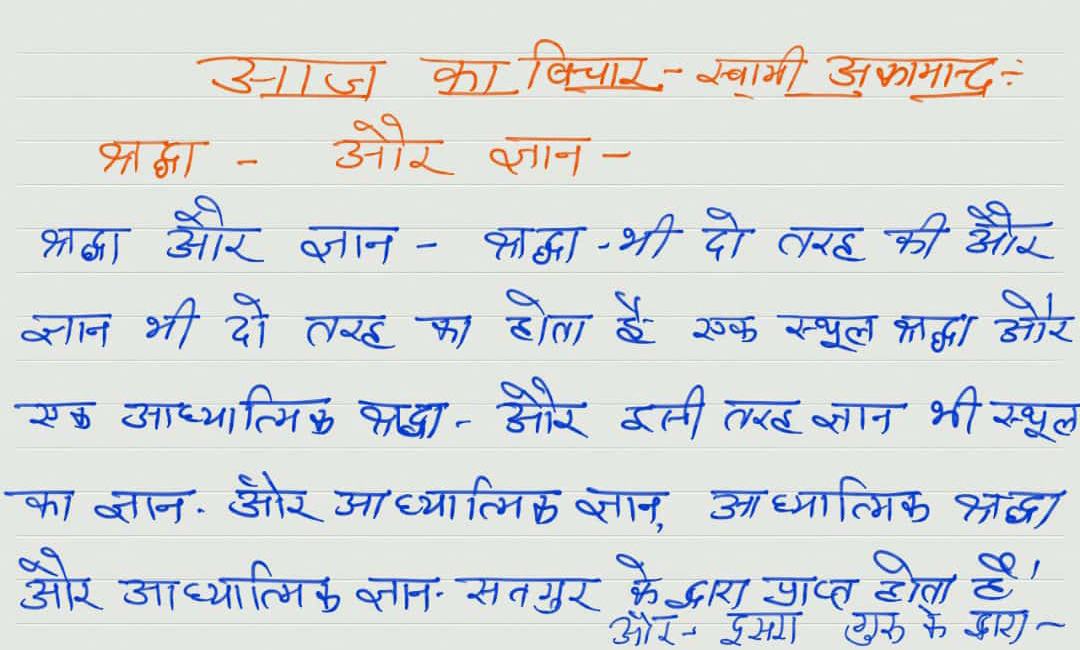 आज का विचार - स्वामी अकामान्द ÷
श्रद्धा - और ज्ञान -
श्रद्धा और ज्ञान - श्रद्धा - भी दो तरह की और
ज्ञान भी दो तरह का होता है एक स्थूल श्रद्धा और
एक आध्यात्मिक श्रद्धा - और इसी तरह ज्ञान भी स्थूल
का ज्ञान. और आध्यात्मिक ज्ञान, आध्यात्मिक श्रद्धा
और आध्यात्मिक ज्ञान. सतगुर के द्वारा प्राप्त होता है।
और - दूसरा गुरु के द्वारा -